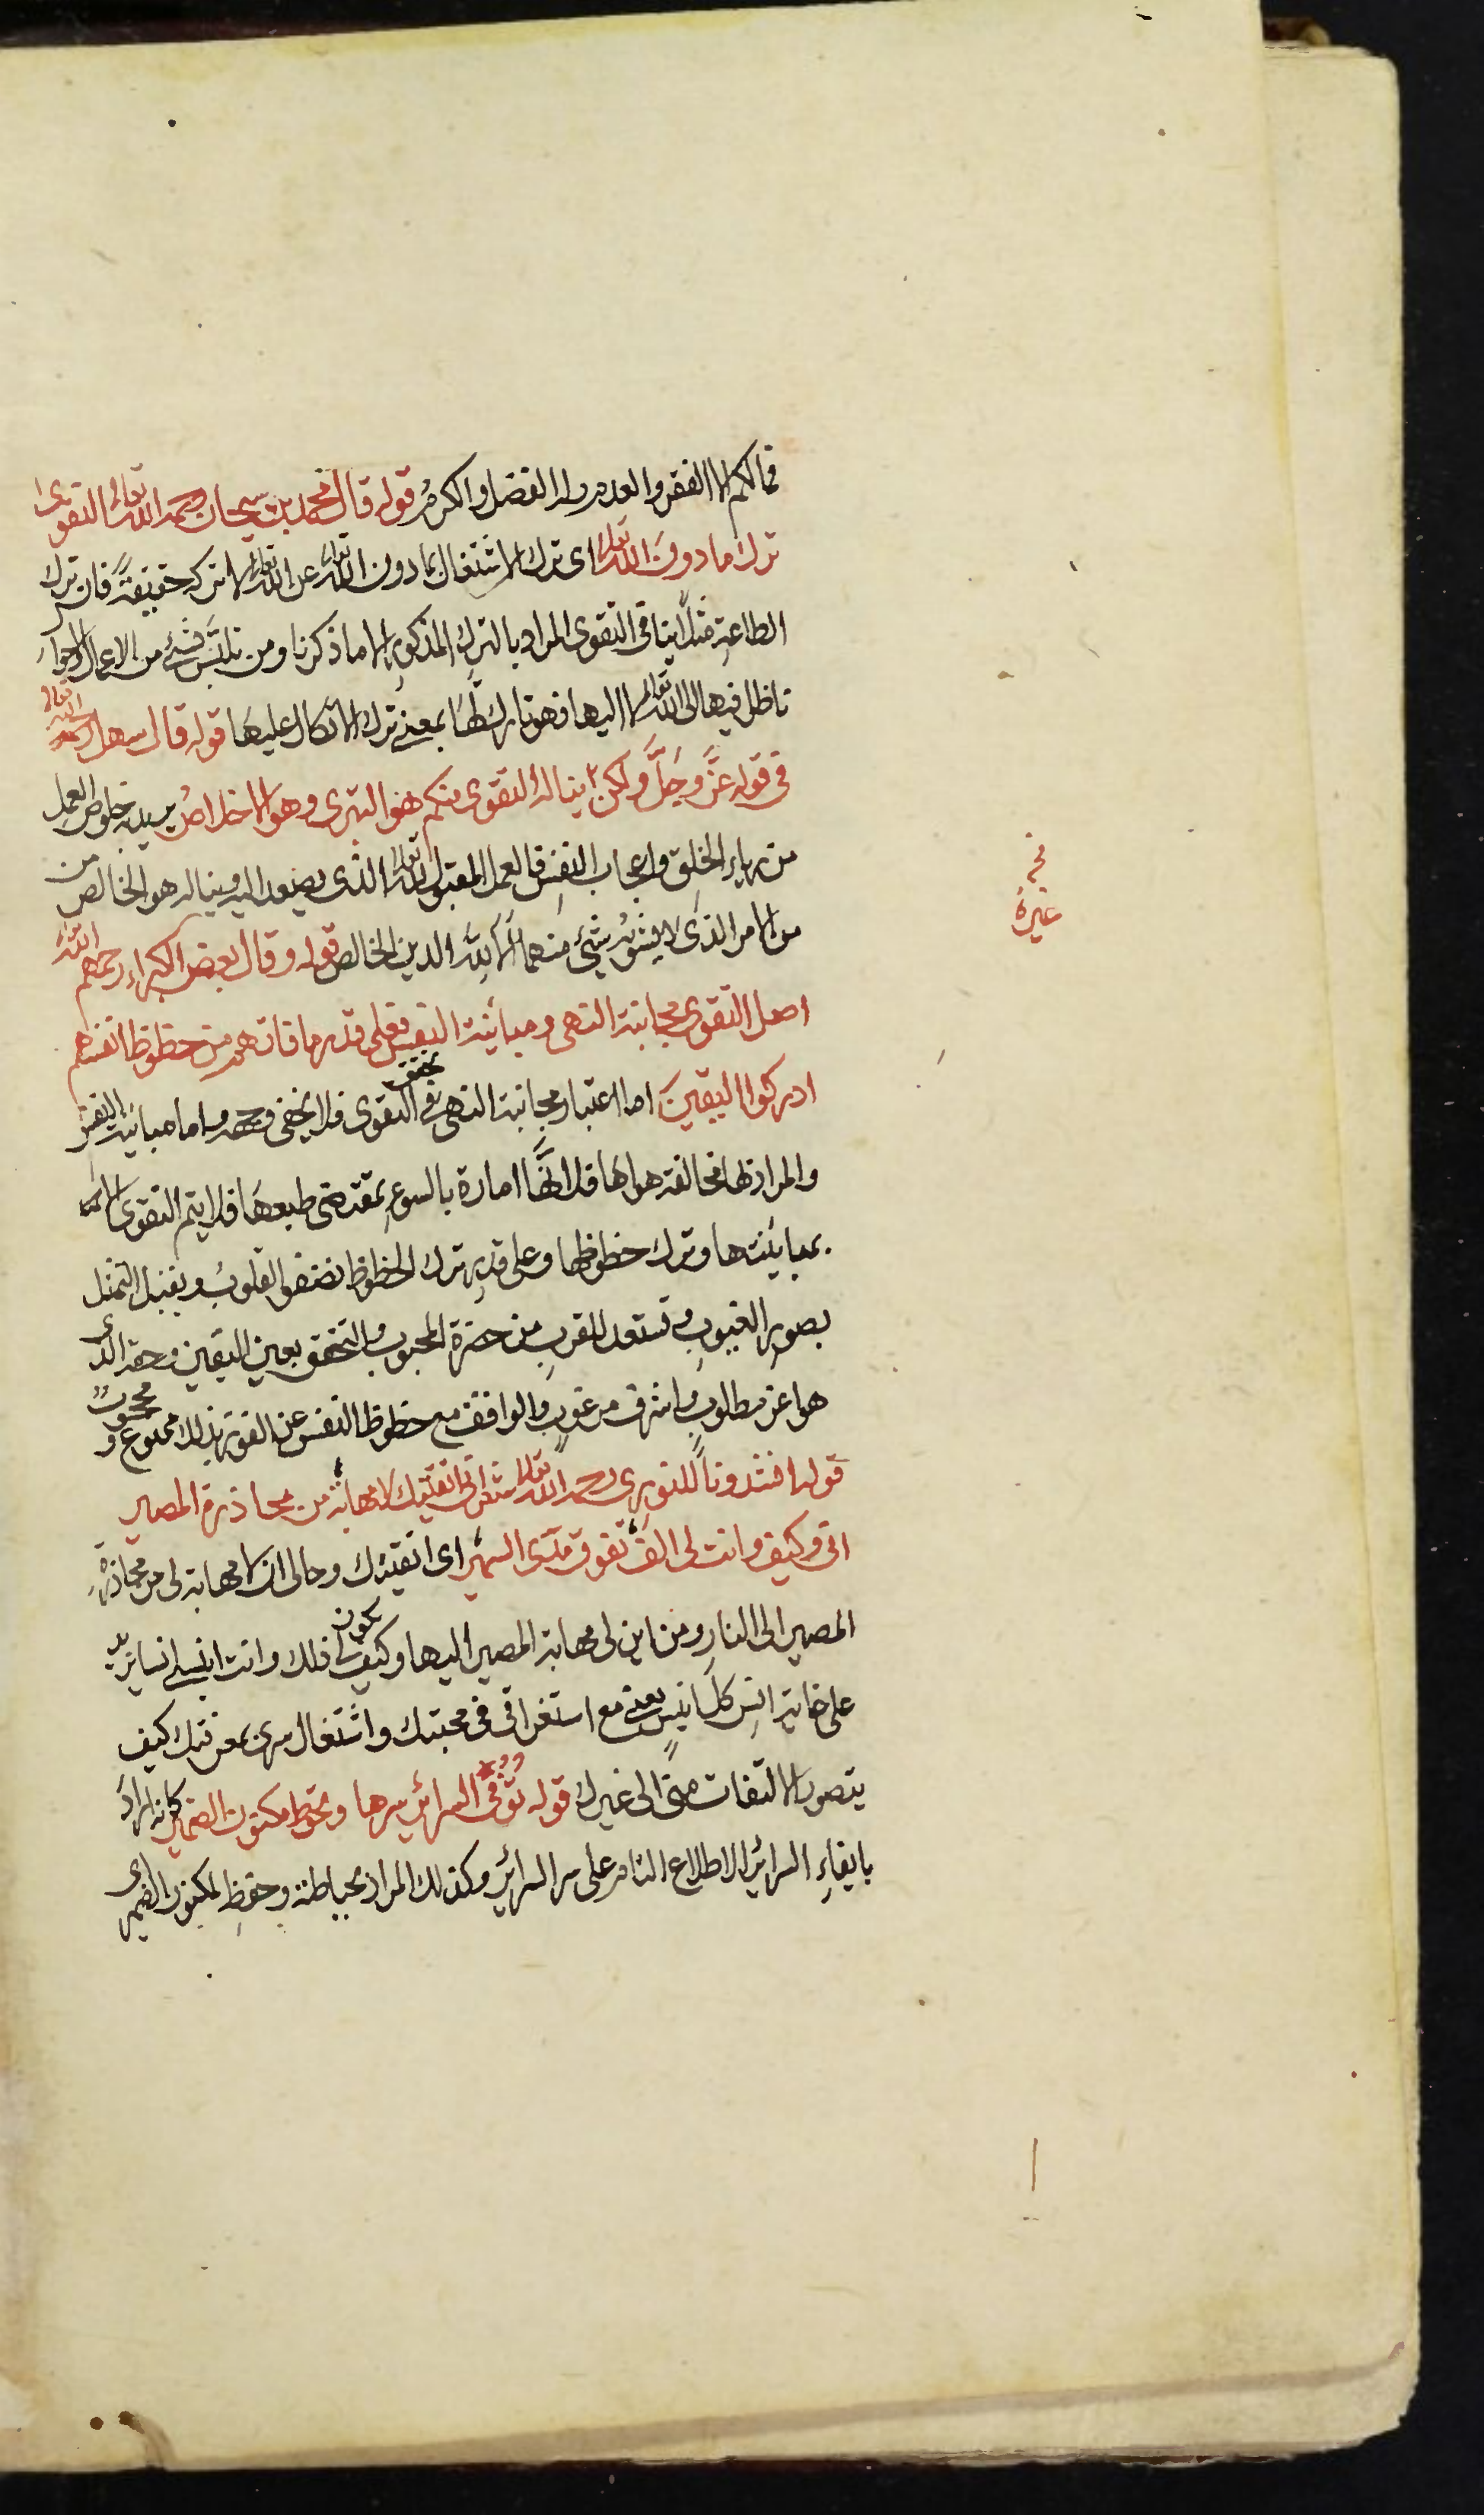 فمالكم الا الفقر والعدم وله الفضل والكرم قوله قال محمد بن سبحان رحمه الله تعالى التقوى
ترك ما دون الله تعالى اى ترك الاشتغال بما دون الله تعالى عن الله تعالى لا تركه حقيقةً فان ترك
الطاعةِ مثلًا ينافى التقوى المراد بالتركِ المذكورِ ما ذكرنا ومن تلبَّس بشئ من الاعمال
ناظرا فيها الى الله تعالى لا اليها فهو تارك لها بمعنى ترك الاتكال عليها قوله قال سهل رحمه الله تعالى
فى قوله عَزَّ وجَلَّ ولكن يناله التقوى منكم هو التبرى وهو الاخلاصُ يريد به خلوصَ العملِ
من رياءِ الخلقِ واعجاب النفسِ فالعمل المقبول لله تعالى الذى يصعد اليه ويناله هو الخالص من
من الامر الذى لا يشوبُه شئ منهما الا لله الدين الخالص قوله وقال بعض الكبراءِ رحمهم الله
اصل التقوى مجانبة النهى ومباينة النفس فعلى قدر ما فاتهم من حظوظ انفسهم
ادركوا اليقينَ اما اعتبار مجانبة النهى فى تحقق التقوى فلا يخفى وجهه واما مباينة النفس
والمراد بها مخالفة هواها فلانَّها امارة بالسوءِ بمقتضى طبعها فلا يتم التقوى الا
بمباينتها وترك حظوظها وعلى قدر ترك الحظوظ تصفو القلوبُ ويقبل التمثل
بصورِ الغيوبِ وتستعد للقربِ من حضرة المحبوب والتحقق بعين اليقين وحقه الذى
هو اعز مطلوبٍ واشرف مرغوبٍ والواقف مع حظوظ النفس عن الفوز بذلك ممنوع ومحجوبٌ
قوله انشدونا للنورى رحمه الله تعالى شعر انى اتقيتك لا مهابةً من محاذرة المصير
انى وكيف وانت لى الفٌ تفوق مدى السمير اى اتقيتك وحالى ان لا مهابة لى من محاذرةِ
المصير الى النارِ ومن اين لى مهابة المصير اليها وكيف يكون لى ذلك وانت انيسى انسا يزيد
على غاية انسِ كل انيسٍ يعنى مع استغراقى فى محبتك واشتغال سرى بمعرفتك كيف
يتصور الالتفات منى الى غيرك قوله تُوَفِّى السرائر سرها وتحوط مكنون الضمير كانه اراد
بايفاءِ السرائر الاطلاع التام على سر السرائر وكذلك المراد بحياطة وحفظِ لمكنون الضمير اى
نخ
غيرهُ